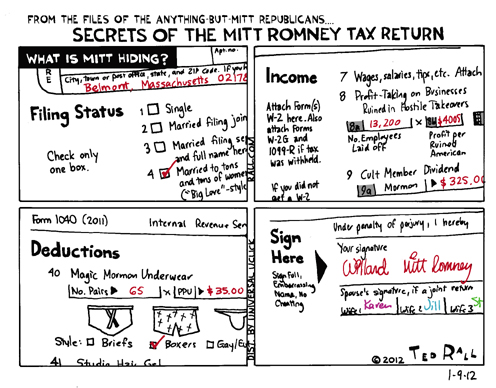 FROM THE FILES OF THE ANYTHING-BUT-MITT REPUBLICANS....
SECRETS OF THE MITT ROMNEY TAX RETURN
WHAT IS MITT HIDING?
Apt. no.
R
E
City, town or post office, state, and ZIP code. If you h
Belmont, Massachusetts 02178
Filing Status
Check only
one box.
1 Single
2 Married filing join
3 Married filing sep
and full name here
4 Married to tons
and tons of women
("Big Love"-style
RALL.COM
Income
Attach Form(s)
W-2 here. Also
attach Forms
W-2G and
1099-R if tax
was withheld.
If you did not
get a W-2
7 Wages, salaries, tips, etc. Attach
8 Profit-Taking on Businesses
Ruined in Hostile Takeovers
8a 13,200 × $4005
No. Employees
Laid off
Profit per
Ruined
American
9 Cult Member Dividend
9a Mormon $325,00
Form 1040 (2011) Internal Revenue Ser
Deductions
40 Magic Mormon Underwear
No. Pairs 65 × PPU $35.00
Style: Briefs Boxers Gay/Eu
41 Studio Hair Gel
DIST. BY UNIVERSAL UCLICK
Sign
Here
Sign Full,
Embarrassing
Name, No
Cheating
Under penalty of perjury, I hereby
Your signature
Willard Mitt Romney
Spouse's signature, if a joint return
Wife 1 Karen Wife 2 Jill Wife 3 St
©2012 TED RALL
1-9-12